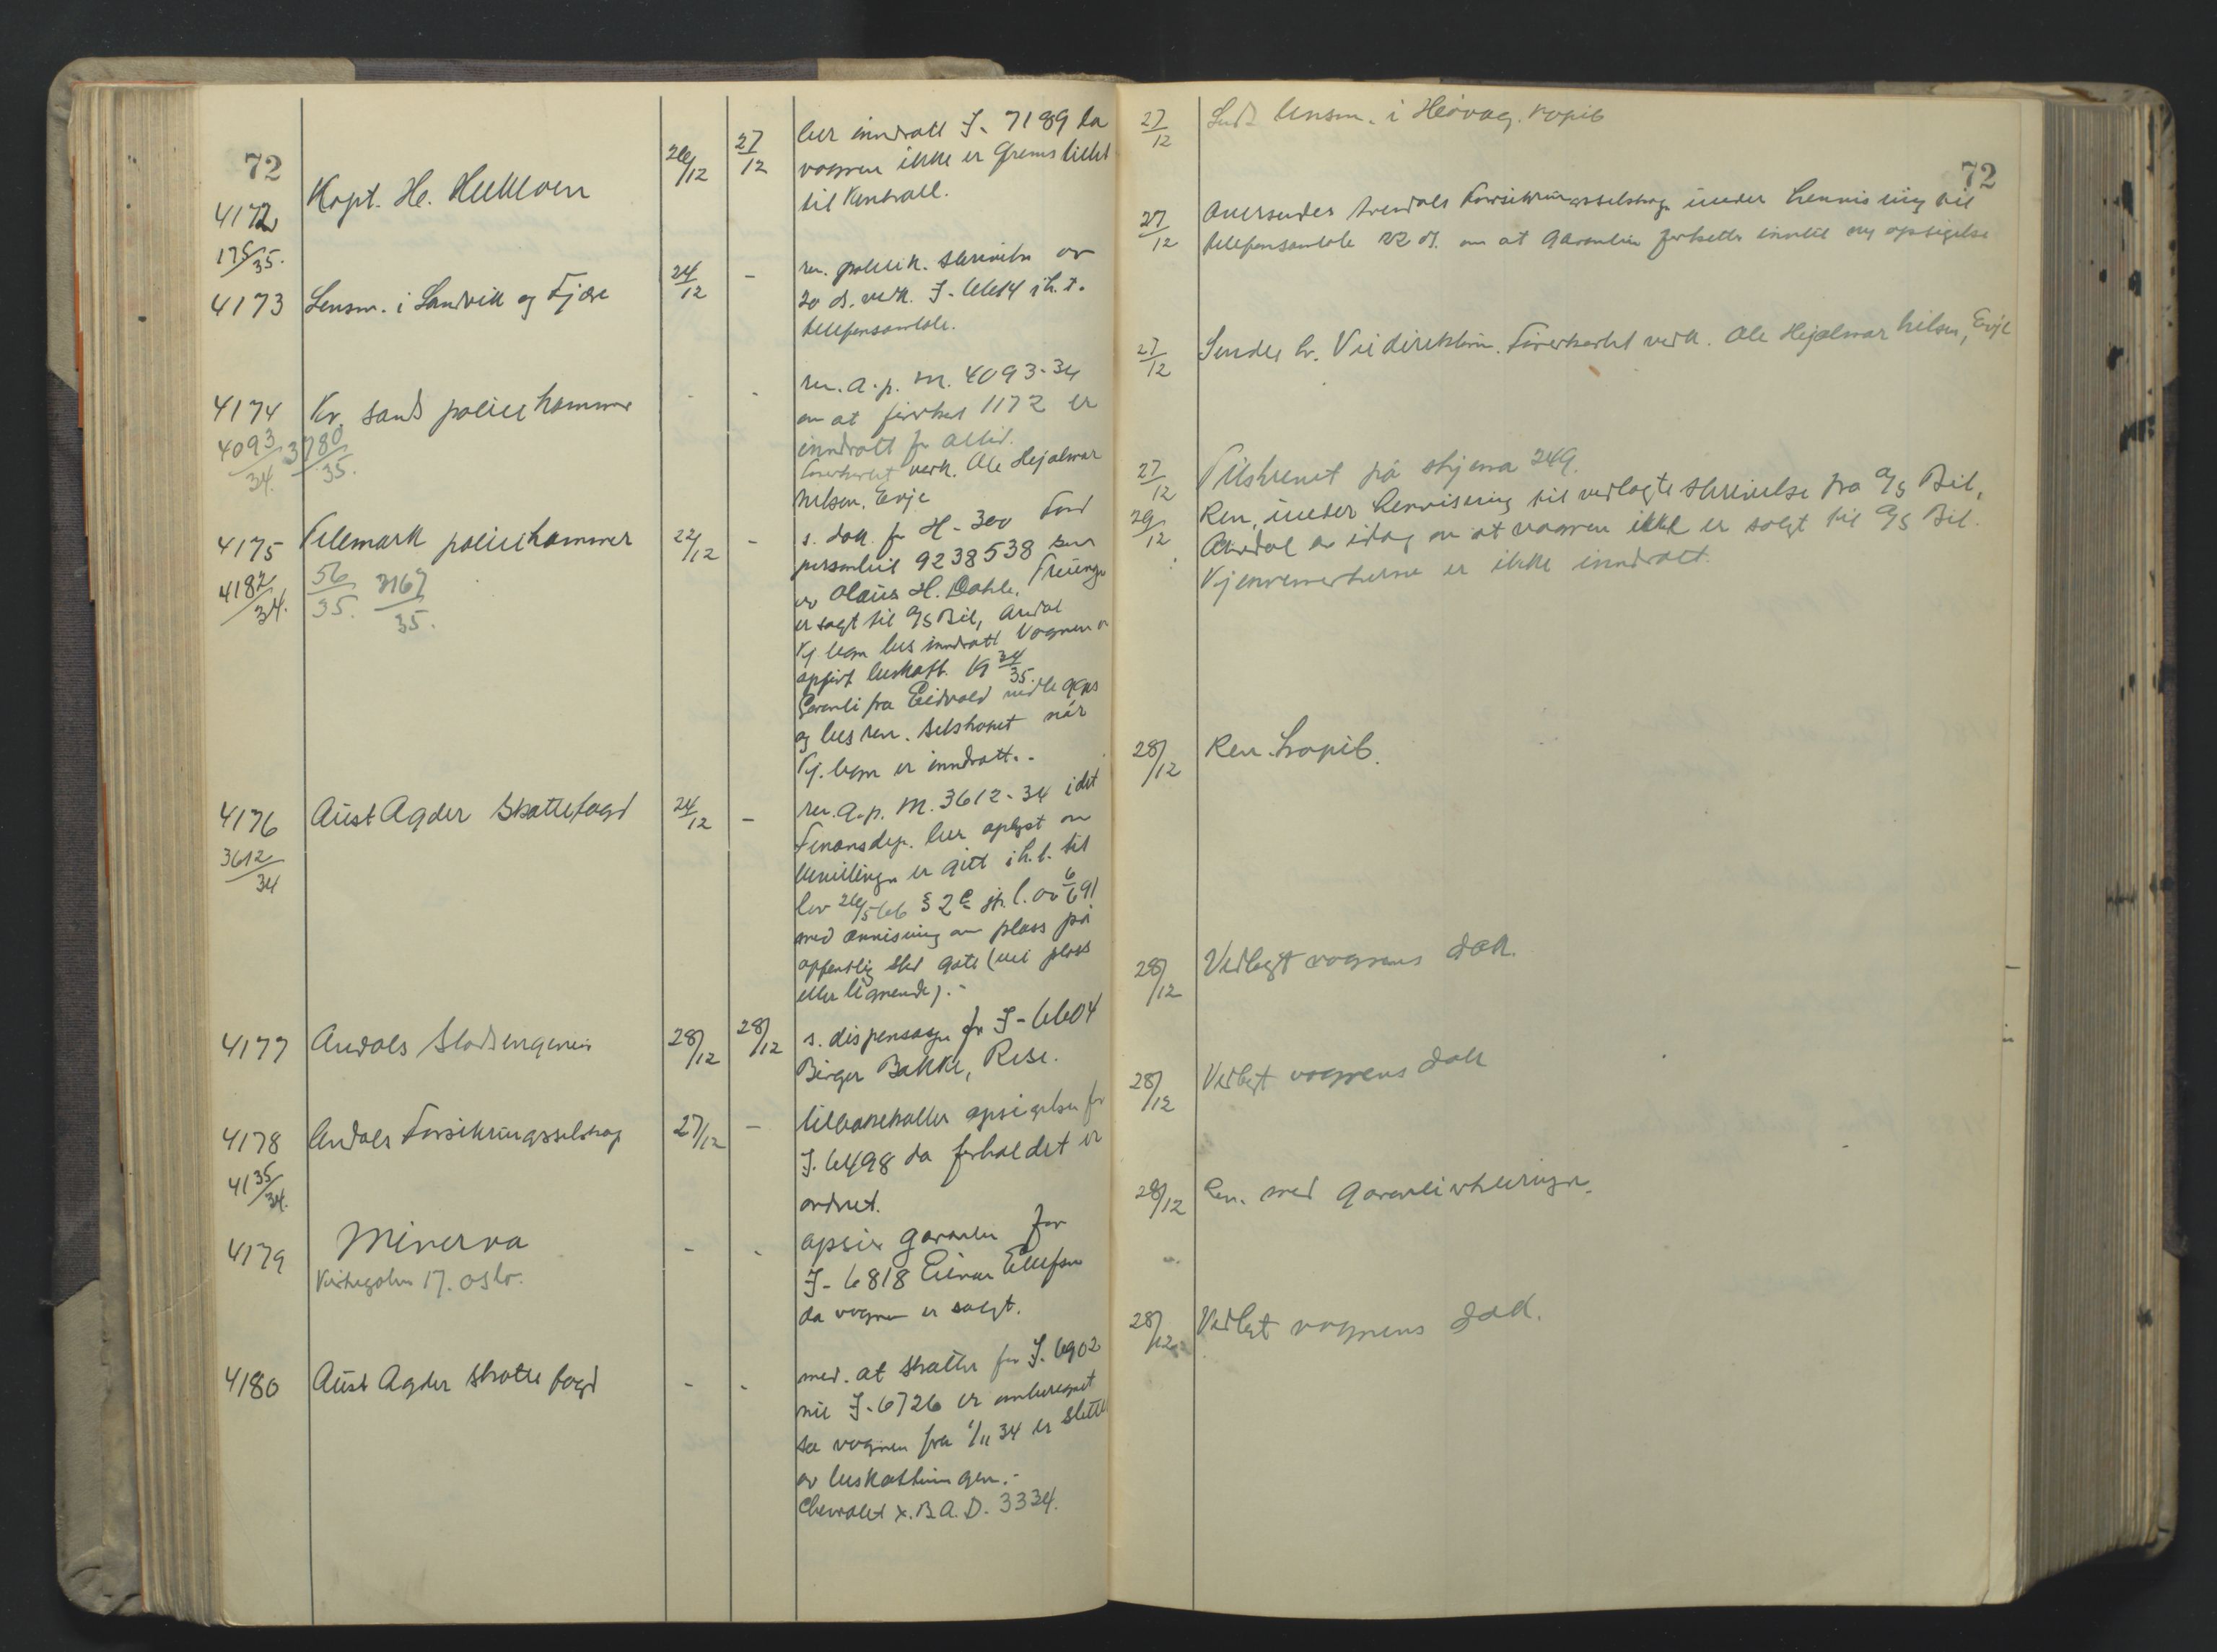 72
4172
175/35.
Kapt. H.
26/12
27/12
inndratt J-7189 da
vognen ikke er
til kontroll.
4173
Lensm. i Landvik og Fjære
24/12
-
ren. politik. skrivelse av
20 ds. vedk. J-6614 i h. t.
telefonsamtale.
4174
4093/34. 3780/35.
Kr. sands politikammer
-
-
ren. a.p. M. 4093-34
om at førerkort 1172 er
inndratt for alltid.
Førerkortet vedk. Ole Hejalmar
Nilsen, Evje
4175
4182/34.
Telemark politikammer
56/35. 3167/35.
22/12
-
s. dok. for H-300 Ford
personbil 9238538 som
av Olaus H. Dahle, Treungen
er solgt til A/S Bil, Arendal
Kj. tegn bes inndratt. Vognen er
oppført beskatt. 34/35.
Garanti fra Eidsvold vedlegges
og bes ren. selskapet når
Kj. tegn er inndratt.
4176
3612/34
Aust Agder Skattefogd
24/12
-
ren. a.p. M. 3612-34 idet
Finansdep. ber oplyst om
bevillingen er gitt i h. t. til
lov 26/5 66 § 2 c jfr. l. av 6/6 91
med anvisning av plass på
offentlig sted gate (vei plass
eller lignende).-
4177
Arendals Stadsingeniør
28/12
28/12
s. dispensasjon for J-6604
Birger Bakke, Rise.
4178
4135/34.
Arendals Forsikringsselskap
27/12
-
tilbakekaller opsigelsen for
J. 6498 da forholdet er
ordnet.
4179
Minerva
Kirkegaten 17. Oslo.
-
-
opsier garantien for
J-6818 Einar Ellefsen
da vognen er solgt.
4180
Aust Agder skattefogd
-
-
med. at skatten for J. 6902
nu J-6726 er omberegnet
da vognen fra 1/11 34 er slettet
av beskatningen.-
Chevrolet x. B.A.D. 3334.
72
27/12
Sendt lensm. i Høvåg. kopib
27/12
Oversendes Arendals Forsikringsselskap under henvisning til
telefonsamtale 22 ds. om at garantien fortsetter inntil ny opsigelse
27/12
Sendes hr. Veidirektøren. Førerkortet vedk. Ole Hejalmar Nilsen, Evje
27/12
Tilskrevet på skjema 249.
29/12
Ren. under henvisning til vedlagte skrivelse fra A/S Bil,
Arendal av idag om at vognen ikke er solgt til A/S Bil.
Kjennemerkerne er ikke inndratt.
28/12
Ren. kopib.
28/12
Vedlagt vognens dok.
28/12
Vedlagt vognens dok
28/12
Ren. med garantierklæringen.
-
28/12
Vedlagt vognens dok.